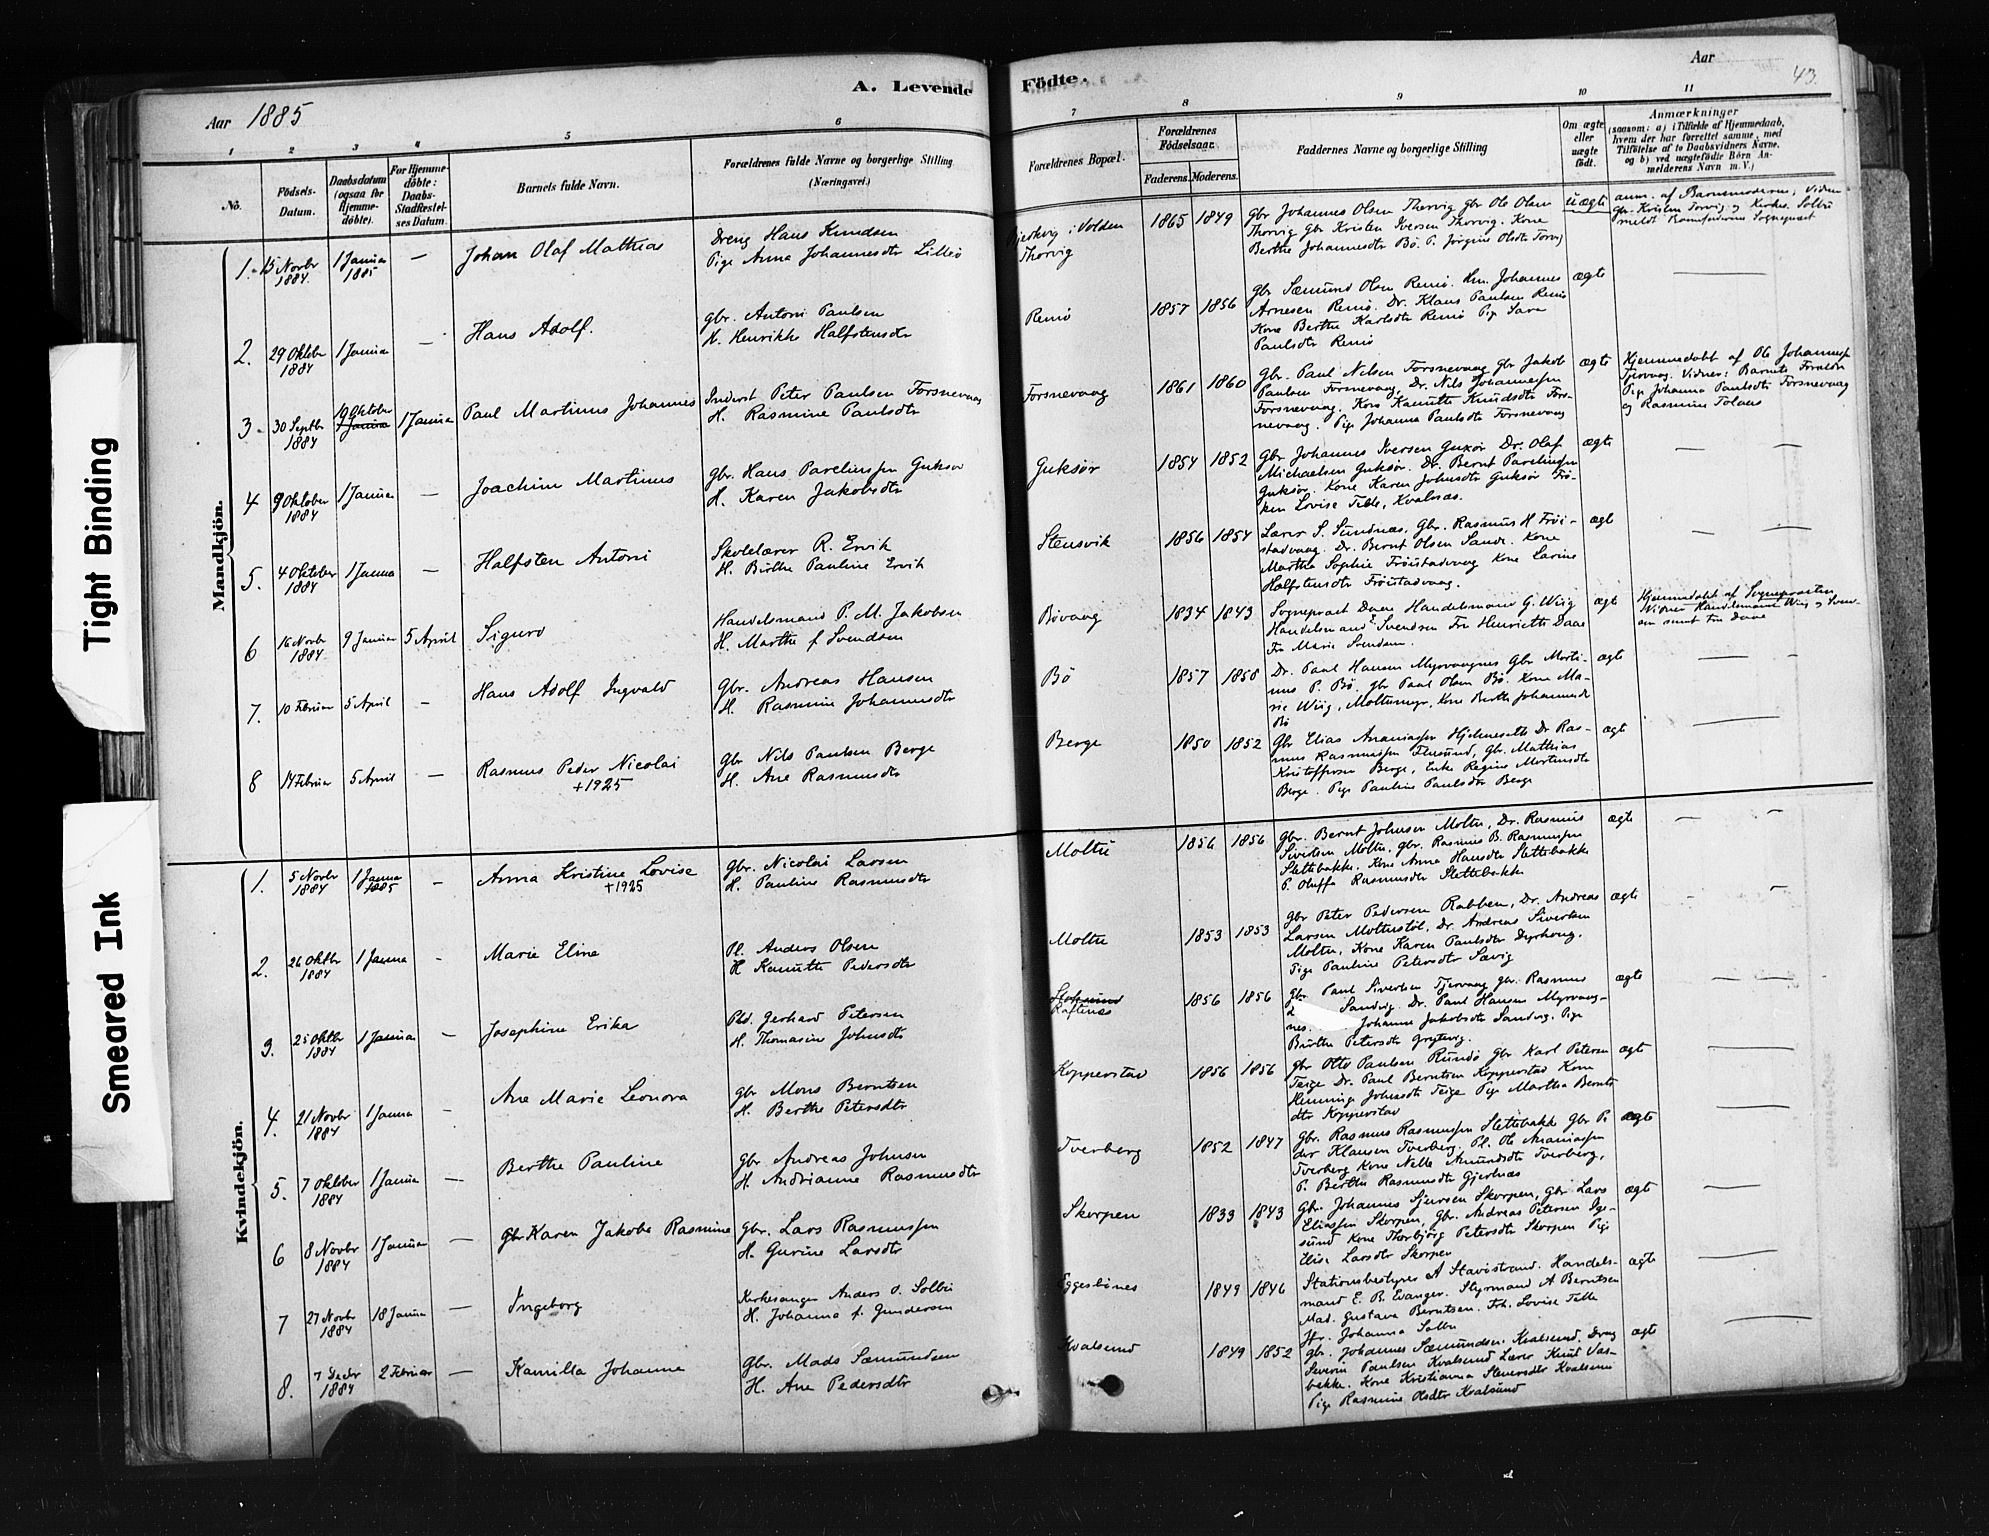 A. Levende Födte.
Aar 1885
Aar
43.
1 2 3 4 5 6 7 8 9 10 11
No.
Födsels-Datum.
Daabsdatum (ogsaa for Hjemmedöbte).
For Hjemmedöbte: Daabs-Stadfæstelses Datum.
Barnets fulde Navn.
Forældrenes fulde Navne og borgerlige Stilling (Næringsvei.)
Forældrenes Bopæl.
Forældrenes Födselsaar.
Faderens. Moderens.
Faddernes Navne og borgerlige Stilling
Om ægte eller uægte födt.
Anmærkninger
(saasom: a) i Tilfælde af Hjemmedaab, hvem der har forrettet samme, med Tilföielse af to Daabsvidners Navne, og b) ved uægtefödte Börn Anmelderens Navn m. V.)
Tight Binding
Smeared Ink
Mandkjön.
1. 15 Novbr 1884. 1 Januar 1885 — Johan Olaf Mathias
Dreng Hans Knudsen
Pige Anna Johannesdtr Lillebø
Thorvig 1865 1849
Gbr Johannes Olsen Thorvig Gbr Ole Olsen
Thorvig Gbr Kristen Iversen Thorvig. Kone
Berthe Johannesdtr Bö. P. Jörgine Olsdtr
uægte
2. 29 Oktober 1884 1 Januar — Hans Adolf.
Gbr. Antoni Paulsen
H. Henrikke Halfstensdtr
Remö 1857 1856
Gbr Sæmund Olsen Remö. Johannes
Arnesen Remö. Dr. Klaus Paulsen Remö
Kone Berthe Karlsdtr Remö Pige
Paulsdtr Remö
ægte —
3. 30 Septbr 1884 19 Oktober 1 Januar Paul Martinus Johannes
Inderst Peter Paulsen Forsnevaag
H. Rasmine Paulsdtr
Forsnevaag 1861 1860
Gbr. Paul Nilsen Forsnevaag Gbr Jakob
Paulsen Forsnevaag, Dr. Nils Johannessen
Forsnevaag. Kone Kanutte Knudsdtr Fors-
nevaag. Pige Johanna Paulsdtr Forsnevaag
ægte
Hjemmedöbt af Ole Johannessen
Tjervaag. Vidner: Barnets Forældre
Pige Johanna Paulsdtr Forsnevaag
og Rasmine
4 9 Oktober 1884 1 Januar — Joachim Martinus
Gbr. Hans Parelius sen Guksør
H. Karen Jakobsdtr
Guksør 1854 1852
Gbr Johannes Iversen Dr. Olaf
Michaelsen Guksør. Dr. Bernt Pareliussen
Guksør. Kone Karen Johnsdtr Guksør Frö-
ken Lovise
ægte — —
5. 4 Oktober 1884 1 Januar — Halfsten Antoni
Skolelærer R. Ervik
H. Birthe Pauline Ervik
Stensvik 1856 1854
Lærer S. Sundnæs, Gbr. Rasmus H Fröi-
stadvaag. Dr. Bernt Olsen Sande. Kone
Martha Sophie Fröistadvaag Kone Larine
Halfstensdtr Fröistadvaag.
ægte — —
6 16 Novbr 1884. 9 Januar 5 April Sigurd
Handelsmand P. M. Jakobsen
H. Marthe f. Svendsen
Bövaag 1834 1843
Sognepræst Daae Handelsmand G. Wiig
Handelsmand Svendsen Fru Henriette Daae
Fru Marie Svendsen.
ægte
Hjemmedöbt af Sognepræsten
Vidner Handelsmand Wiig
samt Fru Daae
7. 10 Februar 5 April — Hans Adolf Ingvald
Gbr. Andreas Hansen
H. Rasmine Johannesdtr
Bö 1857 1858
Dr. Paul Hansen Myrvaagnes Gbr Marti-
nus P. Bö. Gbr Paul Olsen Bö. Kone Ma-
rie Wiig, Moltumyr, Kone Berthe Johannesdtr
Bö
ægte — —
8 14 Februar 5 April — Rasmus Peder Nicolai
+1925
Gbr Nils Paulsen Berge
H. Ane Rasmusdtr
Berge 1850 1852
Gbr Elias Ananiassen Hjelmeseth Dr Ras-
mus Rasmussen Gbr. Mathias
Kristoffersen Berge, Enke Regine Mortensdtr
Berge. Pige Pauline Paulsdtr Berge
ægte —
Kvindekjön.
1. 5 Novbr 1884 1 Januar 1885 — Anna Kristine Lovise
+1925
Gbr. Nicolai Larsen
H. Pauline Rasmusdtr
Moltu 1856 1856
Gbr. Bernt Johnsen Moltu, Dr. Rasmus
Sivertsen Moltu, Gbr. Rasmus B. Rasmussen
Slettebakke. Kone Anna Hansdtr Slettebakke
P. Oluffa Rasmusdtr Slettebakke
ægte — —
2. 26 Oktbr 1884 1 Januar - Marie Eline
Pl. Anders Olsen
H Kanutte Pedersdtr
Moltu 1853 1853
Gbr Peter Pedersen Rabben, Dr. Andreas
Larsen Moltustöl, Dr. Andreas Sivertsen
Moltu, Kone Karen Paulsdtr Dyrhoug,
Pige Pauline Petersdtr Sævig
ægte - —
3. 25 Oktbr 1884 1 Januar — Josephine Erika
Pld. Gerhard Petersen
H. Thomasine Johnsdtr
Raftenæs 1856 1856
Gbr Paul Sivertsen Tjervaag Gbr. Rasmus
Sandvig Dr. Paul Hansen Myrvaag-
nes. Johanne Jakobsdtr Sandvig. Pige
Birthe Petersdtr Grytvig.
ægte — —
4. 21 Novbr 1884 1 Januar - Ane Marie Leonora
Gbr Mons Berntsen
H. Berthe Petersdtr
Kopperstad 1856 1856
Gbr Otto Paulsen Rundö Gbr Karl Petersen
Teige Dr. Paul Berntsen Kopperstad Kone
Henninge Johnsdtr Teige Pige Martha Bernts-
dtr Kopperstad
ægte —
5. 7 Oktober 1884 1 Januar — Berthe Pauline
Gbr Andreas Johnsen
H. Andrianne Rasmusdtr
Tverberg 1852 1847
Gbr. Rasmus Rasmussen Slettebakk Gbr Pe-
der Klausen Tverberg. Pl. Ole Ananiassen
Tverberg Kone Nelle Amundsdtr Tverberg,
P. Berthe Rasmusdtr Gjerdnæs
ægte —
6 8 Novbr 1884 1 Januar — Karen Jakoba Rasmine
Gbr. Lars Rasmussen
H. Gurine Larsdtr
Skorpen 1833 1843
Gbr. Johannes Sjursen Skorpen, Gbr. Lars
Eliassen Skorpen, Gbr. Andreas Petersen Ige-
sund Kone Thorbjörg Petersdtr Skorpen Pige
Elise Larsdtr Skorpen
ægte —
7 27 Novbr 1884 18 Januar — Ingeborg
Kirkesanger Anders O. Solbu
H. Johanna f. Gundersen
Eggesbönes 1849 1846
Stationsbestyrer A Stavöstrand. Handels-
mand E. B. Evanger. Styrmand A Berntsen
Mad. Gustava Berntsen. Frk. Lovise
Johanna Solbu
ægte —
8. 7 Decbr 1884 2 Februar — Kamilla Johanne
Gbr. Mads Sæmundsen
H. Ane Pedersdtr
Kvalsund 1849 1852
Gbr. Johannes Sæmundsen Kvalsund. Dreng
Severin Paulsen Kvalsund Lærer Knud Vas-
bakke. Kone Kristianna Sieversdtr Kvalsund
Pige Rasmine Olsdtr Kvalsund
ægte —